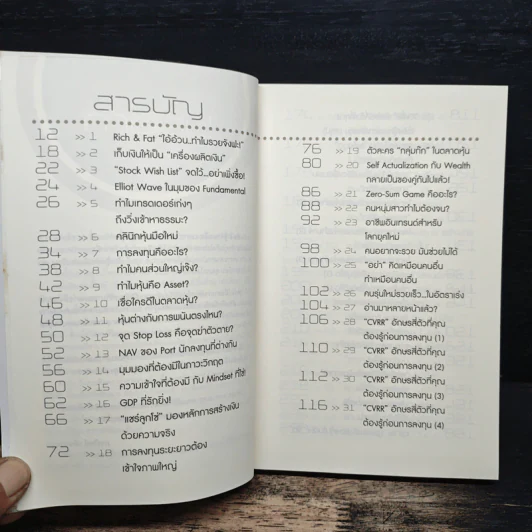 สารบัญ
12 >> 1 Rich & Fat "ไอ้อ้วน..ทำไมรวยจังฟะ!"
18 >> 2 เก็บเงินให้เป็น "เครื่องผลิตเงิน"
22 >> 3 "Stock Wish List" จดไว้...อย่าเพิ่งซื้อ!
24 >> 4 Elliot Wave ในมุมของ Fundamental
26 >> 5 ทำไมเทรดเดอร์เก่งๆ
ถึงวิ่งเข้าหาธรรมะ?
28 >> 6 คลินิกหุ้นมือใหม่
34 >> 7 การลงทุนคืออะไร?
38 >> 8 ทำไมคนส่วนใหญ่เจ๊ง?
42 >> 9 ทำไมหุ้นคือ Asset?
46 >> 10 เชื่อใครดีในตลาดหุ้น?
48 >> 11 หุ้นต่างกับการพนันตรงไหน?
50 >> 12 จุด Stop Loss คือจุดฆ่าตัวตาย?
52 >> 13 NAV ของ Port นักลงทุนที่ต่างกัน
56 >> 14 มุมมองที่ต้องมีในภาวะวิกฤต
60 >> 15 ความเข้าใจที่ต้องมี กับ Mindset ที่ใช่!
62 >> 16 GDP ที่รักยิ่ง!
66 >> 17 "แชร์ลูกโซ่" มองหลักการสร้างเงิน
ด้วยความจริง
72 >> 18 การลงทุนระยะยาวต้อง
เข้าใจภาพใหญ่
76 >> 19 ตัวละคร "กลุ่มกิ๊ก" ในตลาดหุ้น
80 >> 20 Self Actualization กับ Wealth
กลายเป็นของคู่กันไปแล้ว!
86 >> 21 Zero-Sum Game คืออะไร?
88 >> 22 คนหนุ่มสาวทำไมต้องจน?
92 >> 23 อาชีพอินเทรนด์สำหรับ
โลกยุคใหม่
98 >> 24 คนอยากจะรวย มันช่วยไม่ได้
100 >> 25 "อย่า" คิดเหมือนคนอื่น
ทำเหมือนคนอื่น
102 >> 26 คนรุ่นใหม่รวยเร็ว...ในอัตราเร่ง
104 >> 27 อ่านมาหลายหน้าแล้ว?
106 >> 28 "CVRR" อักษรสี่ตัวที่คุณ
ต้องรู้ก่อนการลงทุน (1)
110 >> 29 "CVRR" อักษรสี่ตัวที่คุณ
ต้องรู้ก่อนการลงทุน (2)
112 >> 30 "CVRR" อักษรสี่ตัวที่คุณ
ต้องรู้ก่อนการลงทุน (3)
116 >> 31 "CVRR" อักษรสี่ตัวที่คุณ
ต้องรู้ก่อนการลงทุน (4)